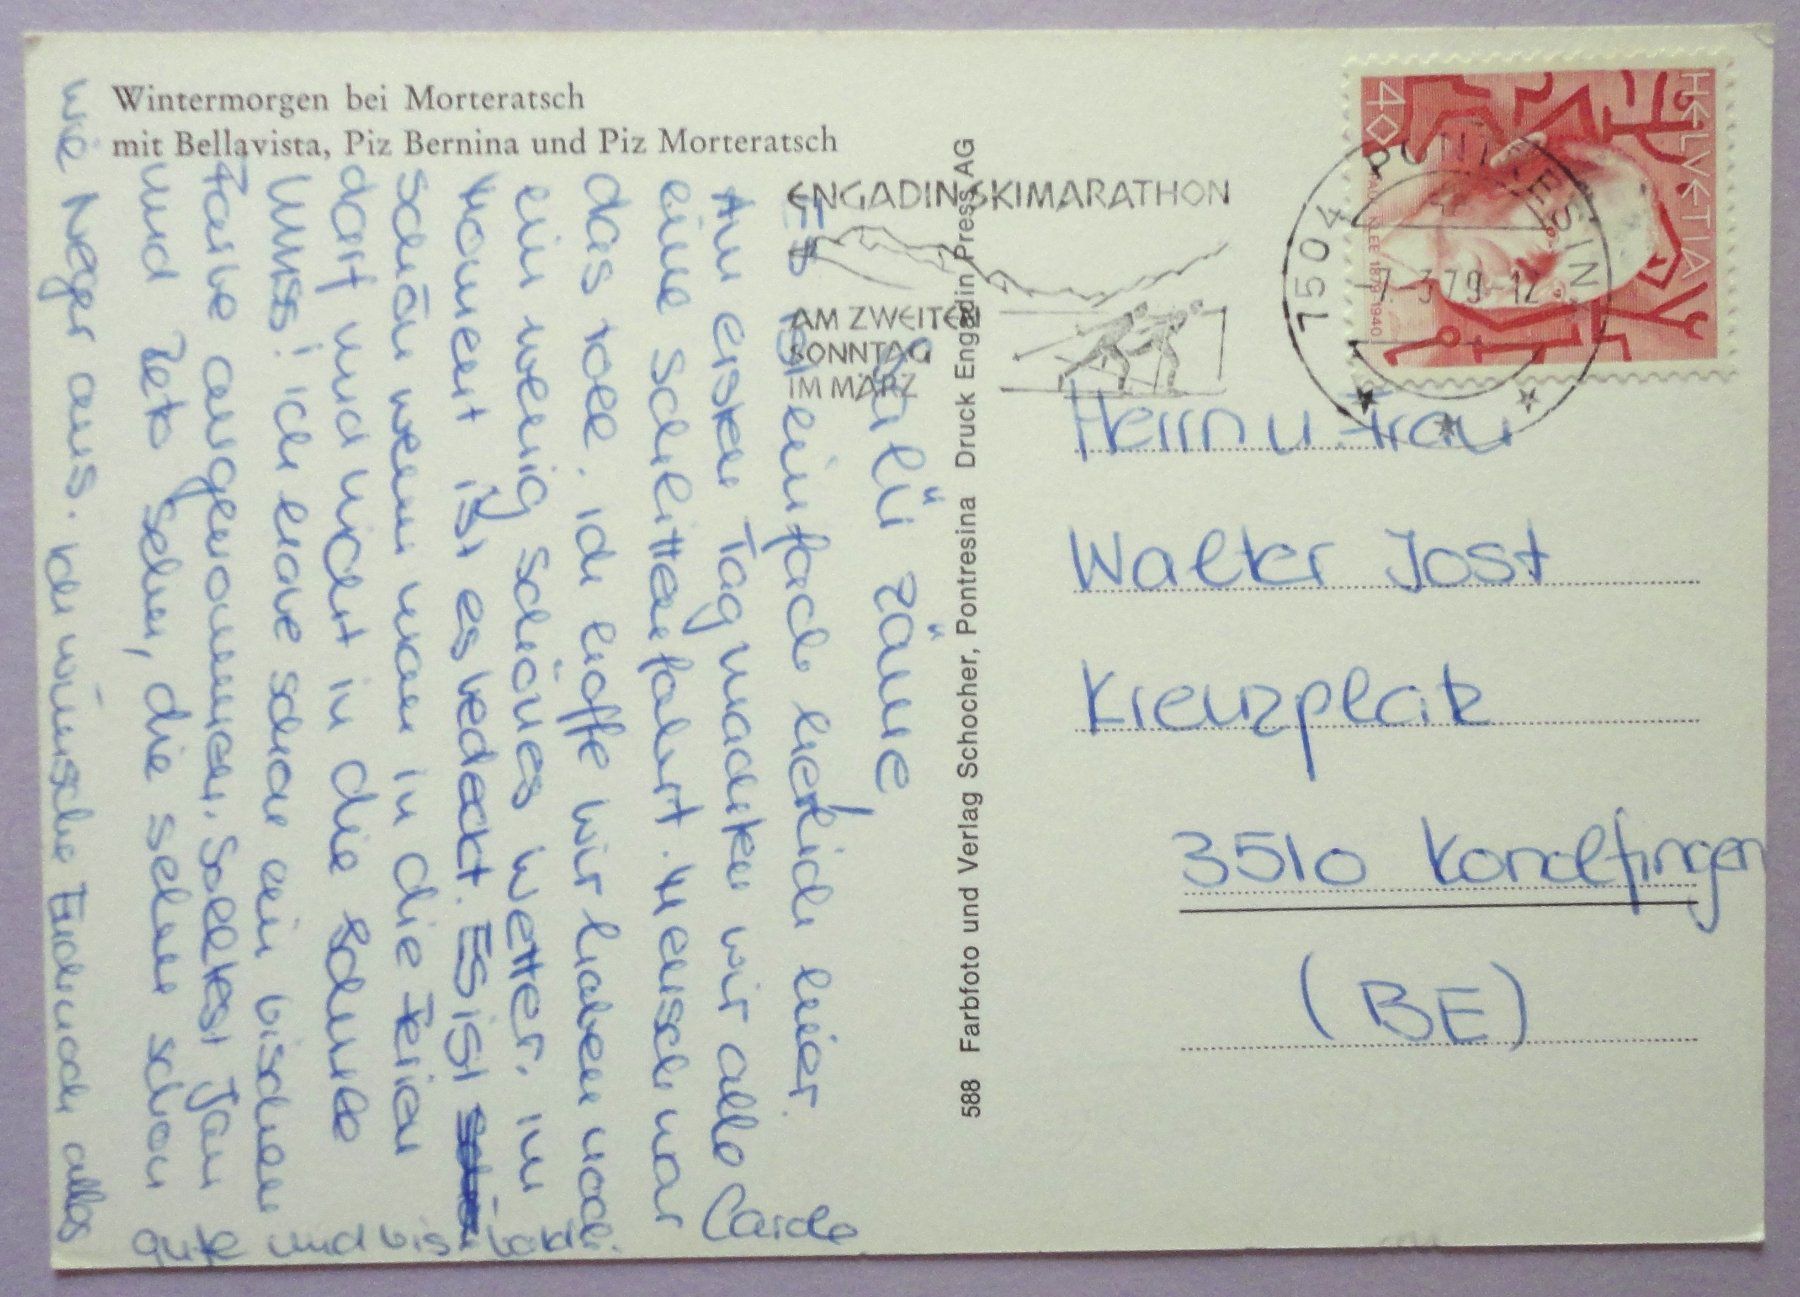 Wintermorgen bei Morteratsch
mit Bellavista, Piz Bernina und Piz Morteratsch
ENGADIN SKIMARATHON
AM ZWEITEN
SONNTAG
IM MÄRZ
1504 PONTRESINA
-7.-3.79-12
HELVETIA
40
PAUL KLEE 1879-1940
588 Farbfoto und Verlag Schocher, Pontresina Druck Engadin Press AG
Herrn u. Frau
Walter Jost
Kreuzplatz
3510 Konolfingen
(BE)
zäme,
Es ist einfach herrlich hier.
Am ersten Tag machten wir alle
eine Schlittenfahrt. Mensch war
das toll. ich hoffe wir haben noch
ein wenig schönes Wetter, im
Moment ist es bedeckt. Es ist
schön wenn man in die Ferien
darf und nicht in die Schule
muss! ich habe schon ein bischen
Farbe angenommen. Solltest Jan
und Reto sehen, die sehen schon
wie Neger aus. ich wünsche Euch noch alles
gute und bis bald.
Carole